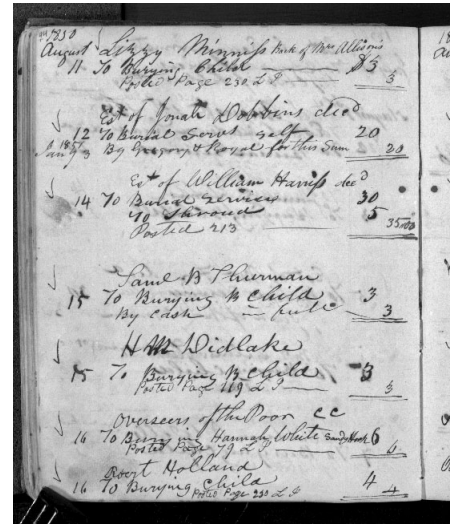 1850
August Lizzy Minniss Back of Mrs Allison's
11 To Burying Child $3
Posted Page 230 L I 3
Est of Jonah Dobbins dec'd
12 To Burial Servs self 20
By Gregory & Royal for this Sum 20
Est of William Harriss dec'd
14 To Burial Services 30
To Shroud 5
Posted 213 35.00
Saml B Thurman
15 To Burying B Child 3
By Cash in full 3
H M Didlake
15 To Burying B Child 3
Posted Page 119 L I 3
Overseers of the Poor C C
16 To Burying Hannah White 6
Posted Page 79 L I 6
Robert Holland
16 To Burying Child 4
Posted Page 230 L I 4